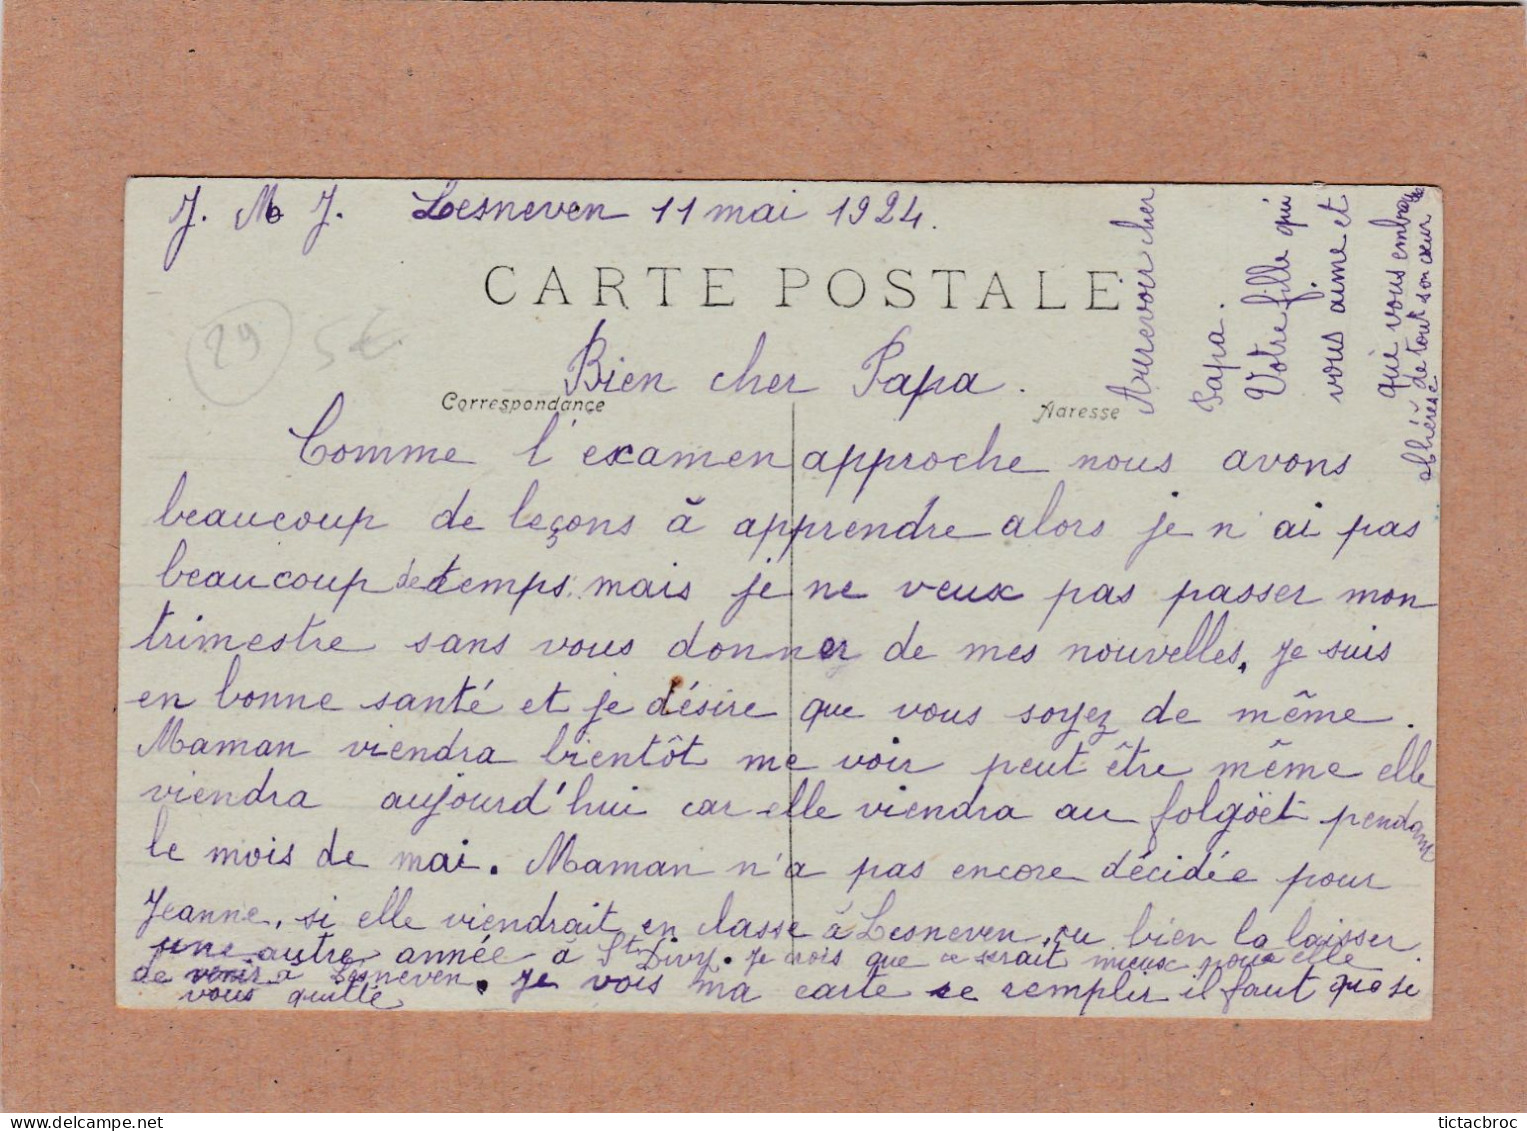 J. M J. Lesneven 11 mai 1924.
CARTE POSTALE
29 5€
Bien cher Papa.
Correspondance
Adresse
Comme l'examen approche nous avons
beaucoup de leçons à apprendre alors je n'ai pas
beaucoup de temps. mais je ne veux pas passer mon
trimestre sans vous donner de mes nouvelles. Je suis
en bonne santé et je désire que vous soyez de même.
Maman viendra bientôt me voir peut être même elle
viendra aujourd'hui car elle viendra au folgöet pendant
le mois de mai. Maman n'a pas encore décidée pour
Jeanne, si elle viendrait en classe à Lesneven, ou bien la laisser
une autre année à St Divy. Je crois que ce serait mieux pour elle
de venir à Lesneven. Je vois ma carte se remplir il faut que je
vous quitte
Aurevoir cher
Papa.
Votre fille qui
vous aime et
qui vous embrasse
de tout son cœur
tictacbroc